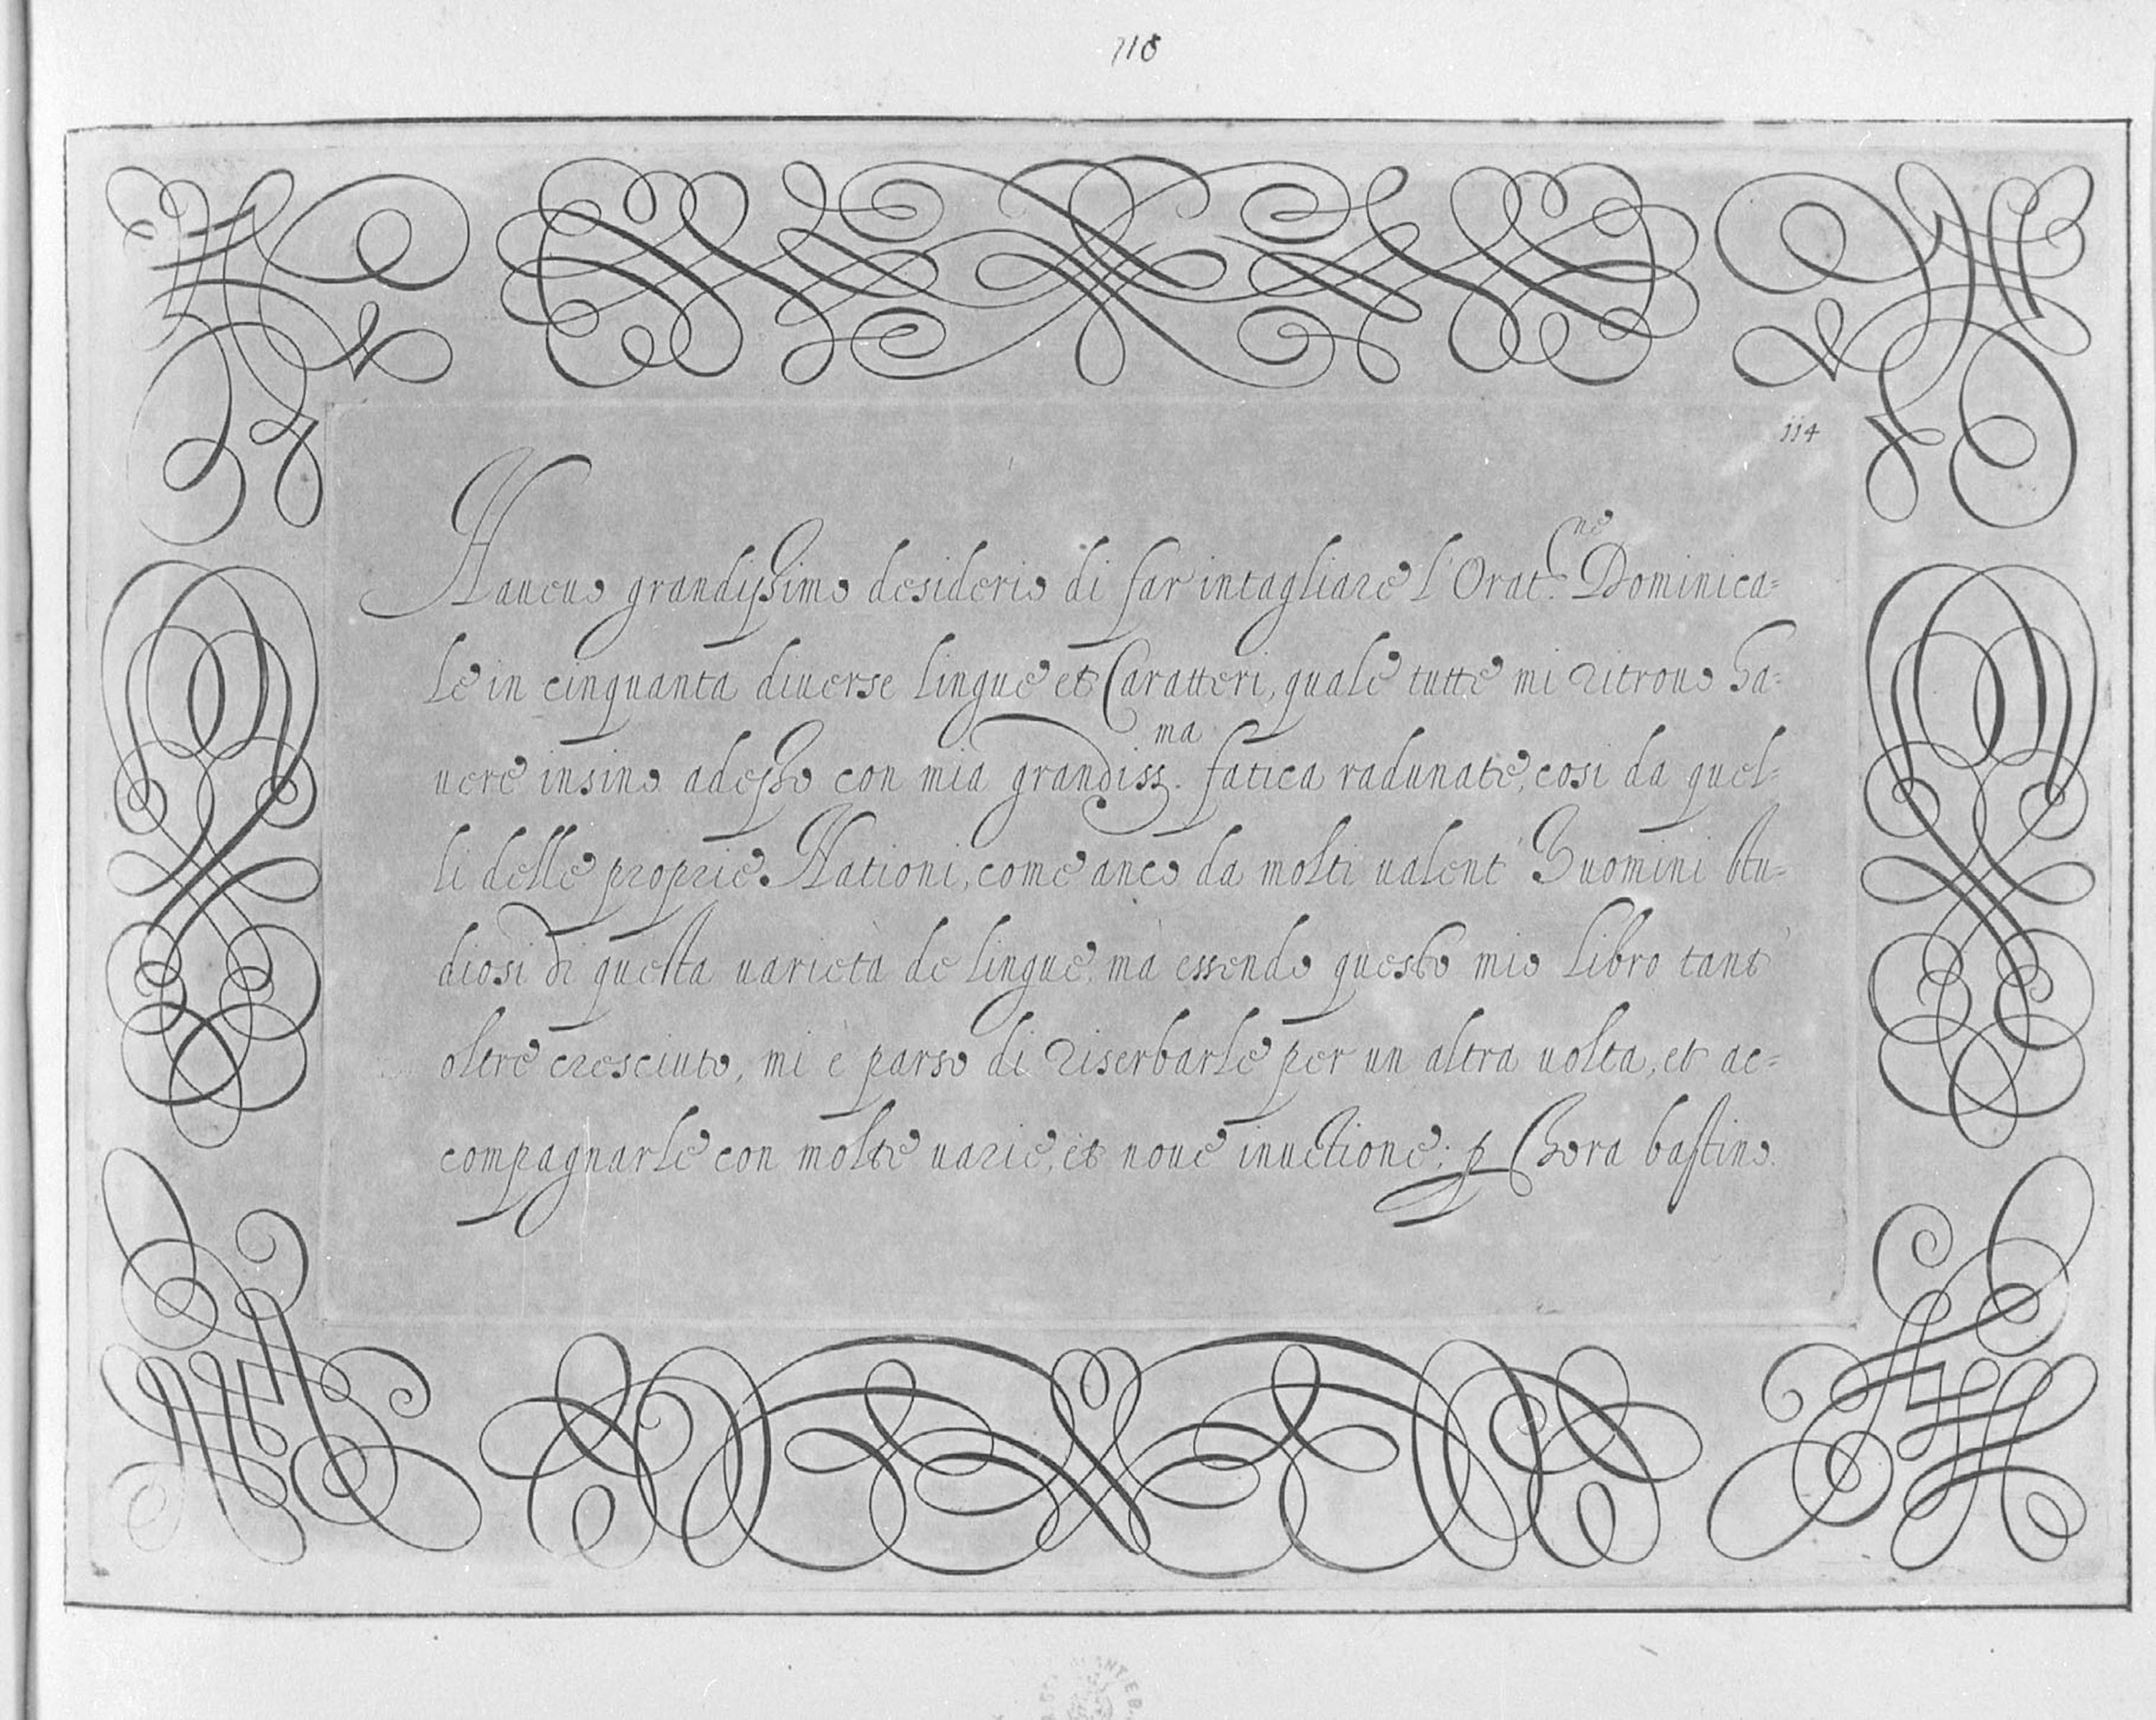 118
114
Haueuo grandissimo desiderio di far intagliare l'Orat.ne Dominica=
le in cinquanta diuerse lingue et Caratteri, quale tutte mi ritrouo ha=
uere insino adesso con mia grandiss.ma fatica radunate, cosi da quel=
li delle proprie Nationi, come anco da molti ualent' huomini stu=
diosi di questa uarietà de lingue, mà essendo questo mio libro tant'
oltre cresciuto, mi è parso di riserbarle per un altra uolta, et ac=
compagnarle con molte uarie, et noue inuētione; p hora bastino.